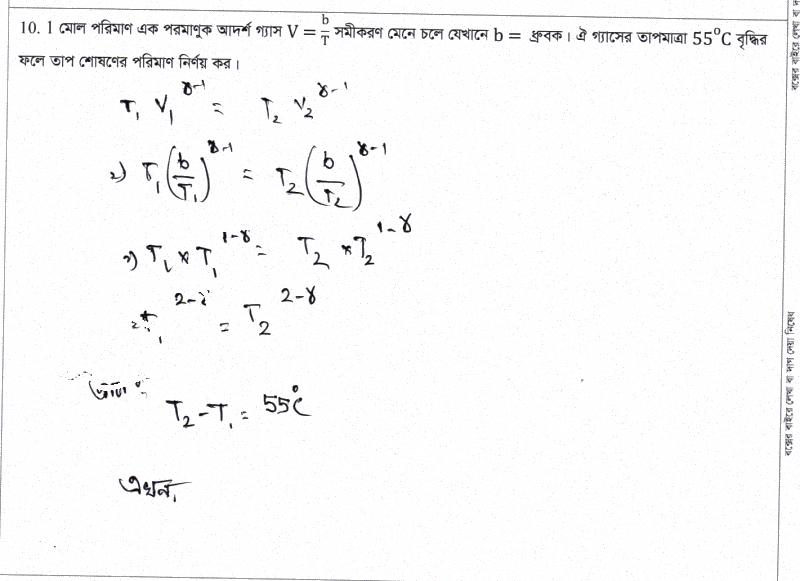 10. 1 মোল পরিমাণ এক পরমাণুক আদর্শ গ্যাস V = b/T সমীকরণ মেনে চলে যেখানে b = ধ্রুবক। ঐ গ্যাসের তাপমাত্রা 55⁰C বৃদ্ধির
ফলে তাপ শোষণের পরিমাণ নির্ণয় কর।
T₁ V₁^(γ-1) = T₂ V₂^(γ-1)
T₁ (b/T₁)^(γ-1) = T₂ (b/T₂)^(γ-1)
T₁ × T₁^(1-γ) = T₂ × T₂^(1-γ)
T₁^(2-γ) = T₂^(2-γ)
T₂ - T₁ = 55°C
এখন,
বক্সের বাইরে লেখা বা দাগ দেয়া নিষেধ